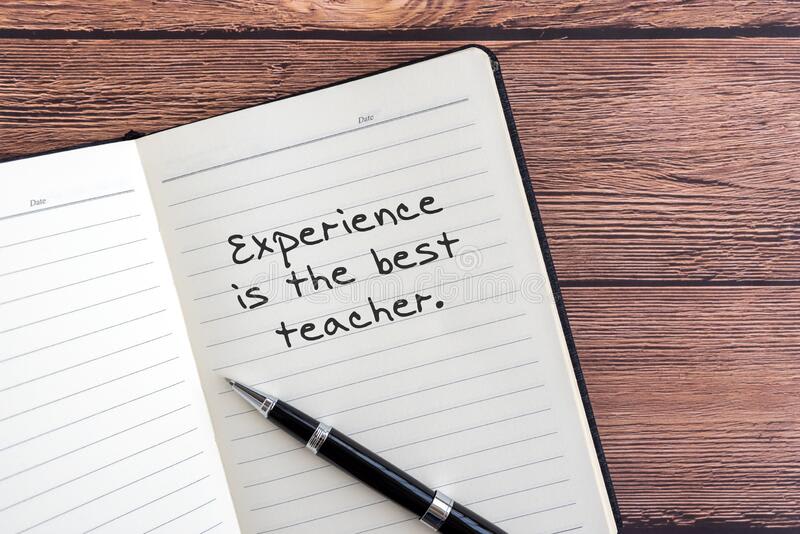 Date
Date
Experience
is the best
teacher.
dreamstime.